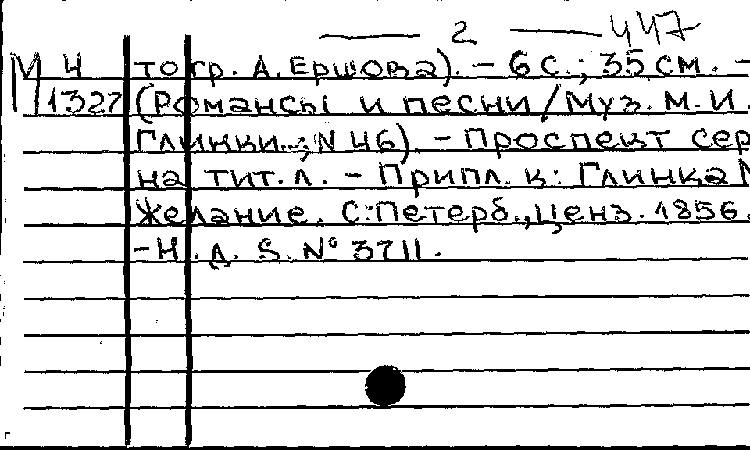 — 2 — 447
М 4 тогр. А. Ершова). – 6 с.; 35 см. –
1327 (Романсы и песни / Муз. М. И.
Глинки..; N 46) – Проспект сер
на тит. л. – Припл. к: Глинка М
Желание. С:Петерб., ценз. 1856.
– Н. д. S. N° 3711.